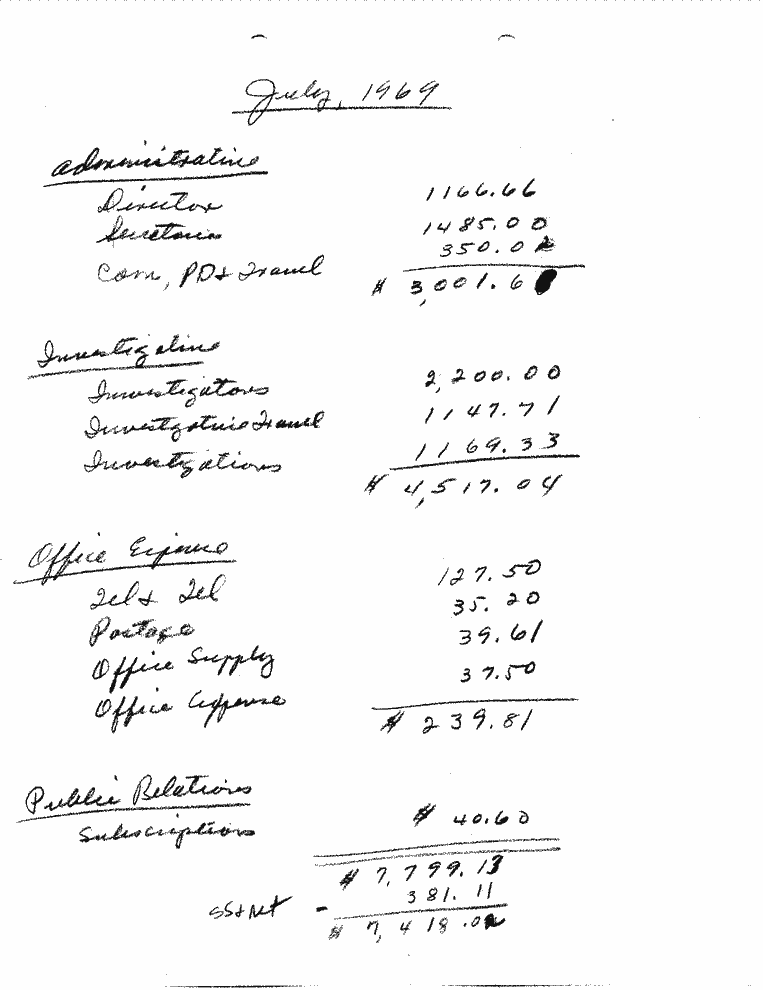 July, 1969
Administrative
Director 1166.66
Secretaries 1485.00
Com, PD & Travel 350.02
$ 3,001.6
Investigative
Investigators 2,200.00
Investigative Travel 1147.71
Investigations 1169.33
$ 4,517.04
Office Expense
Tel & Tel 127.50
Postage 35.20
Office Supply 39.61
Office Expense 37.50
$ 239.81
Public Relations
Subscriptions $ 40.60
$ 7,799.13
SS & - 381.11
$ 7,418.02